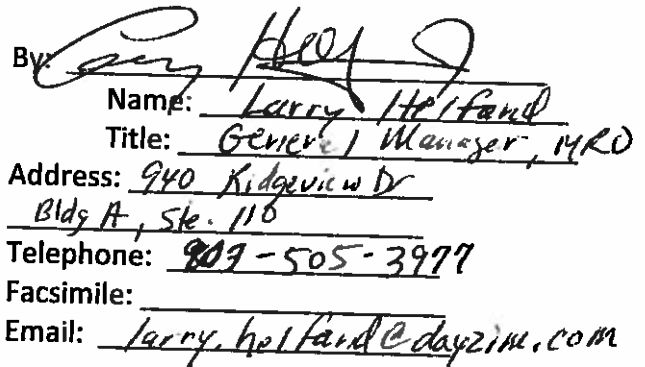 By: Larry Helfand
Name: Larry Helfand
Title: General Manager, MRO
Address: 940 Ridgeview Dr
Bldg A, Ste. 110
Telephone: -505-3977
Facsimile:
Email: larry.helfand@dayzim.com